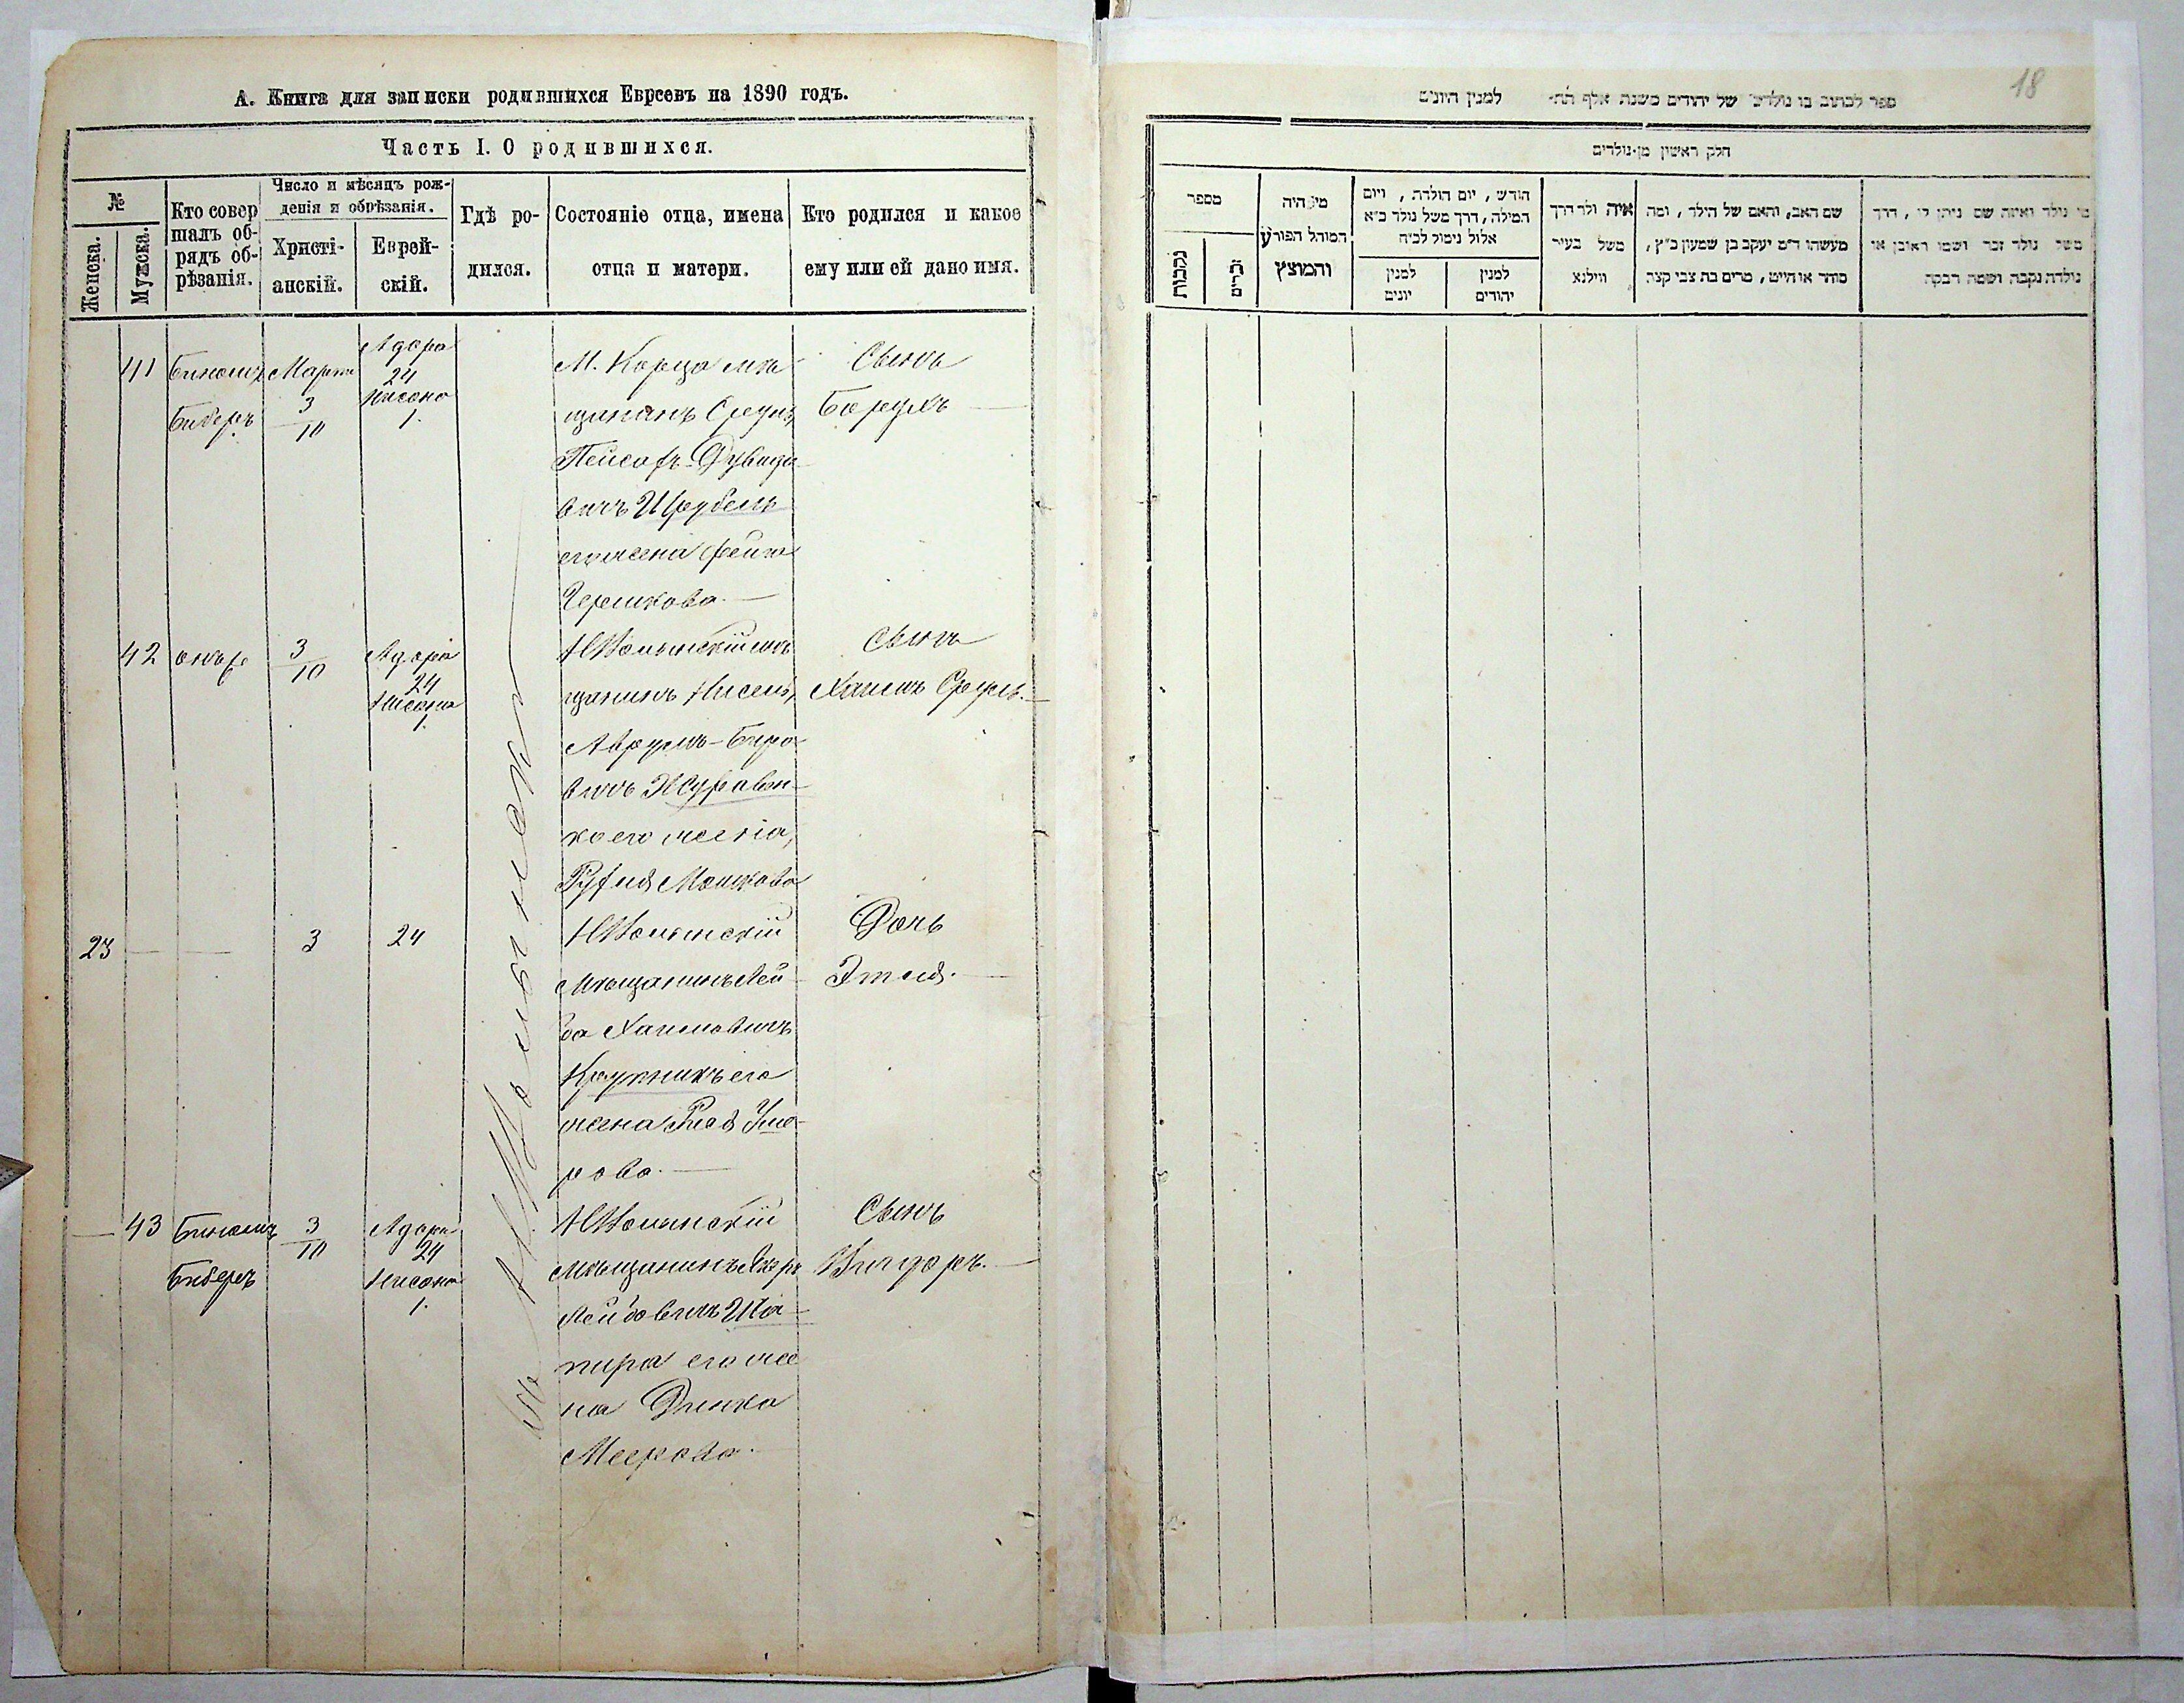 А. Книга для записки родившихся Евреевъ на 1890 годъ.
Часть I. О родившихся.
№
Женска.
Мужска.
Кто совер
шалъ об-
рядъ об-
рѣзанія.
Число и мѣсяцъ рож-
денія и обрѣзанія.
Христі-
анскій.
Еврей-
скій.
Гдѣ ро-
дился.
Состояніе отца, имена
отца и матери.
Кто родился и какое
ему или ей дано имя.
41
Биномъ
Биберъ
Марта
3
10
Адара
24
Нисана
1.
М. Корца мѣ-
щанинъ Срулъ
Пейсахъ-Дувидо-
вичъ
его жена Фейга
Гершкова.
Сынъ
Борухъ
42
онъ же
3
10
Адара
24
Нисана
1.
НВолынскій мѣ
щанинъ Нисель
Аврумъ-Беро
вичъ Журавин-
ко его жена,
Рухля Мошкова
Сынъ
Хаимъ Срулъ.
23
3
24
НВолынскій
Мѣщанинъ Лей-
ба Хаимовичъ
Крупникъ его
жена
рова.
Дочь
Этля.
43
Биномъ
Биберъ
3
10
Адара
24
Нисана
1.
НВолынскій
Мѣщанинъ
Лейбовичъ Ша-
пира его же
на Динка
Меерова.
Сынъ
Вигдоръ.
Въ Н. Волынскѣ
18
ספר לכתוב בו נולדים של יהודים בשנת אלף תת׳ למנין היונים
חלק ראשון מן־נולדים
מספר
נקבות
זכרים
מי היה
המוהל הפורע
והמוצץ
חודש, יום הולדה, ויום
המילה, דרך משל נולד כ״א
אלול נימול לכ״ח
למנין
יונים
למנין
יהודים
איה ולד דרך
משל בעיר
ווילנא
שם האב, והאם של הילד, ומה
מעשהו ד״מ יעקב בן שמעון כ״ץ,
סוחר או חייט, מרים בת צבי קצה
מי נולד ואיזה שם ניתן לו, דרך
משל נולד זכר ושמו ראובן או
נולדה נקבה ושמה רבקה